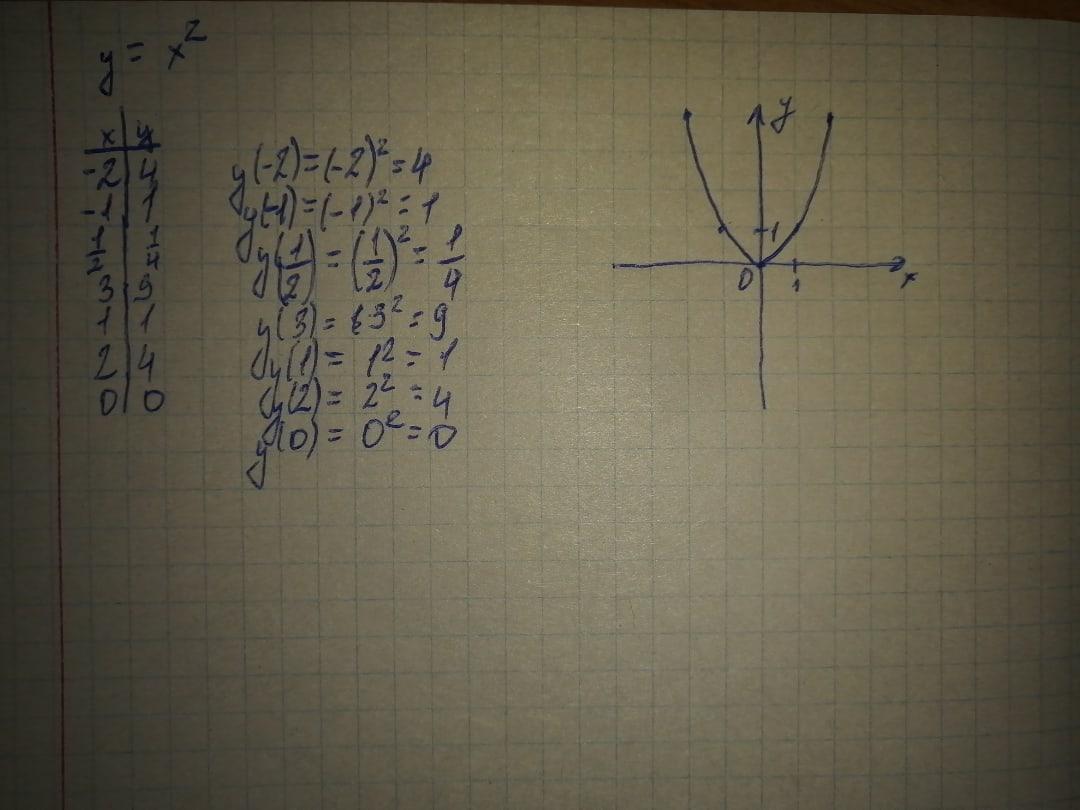 y = x²
x | y
-2 | 4
-1 | 1
1/2 | 1/4
3 | 9
1 | 1
2 | 4
0 | 0
y(-2)=(-2)²=4
y(-1)=(-1)²=1
y(1/2)=(1/2)²=1/4
y(3)=3²=9
y(1)=1²=1
y(2)=2²=4
y(0)=0²=0
y
1
0 1 x